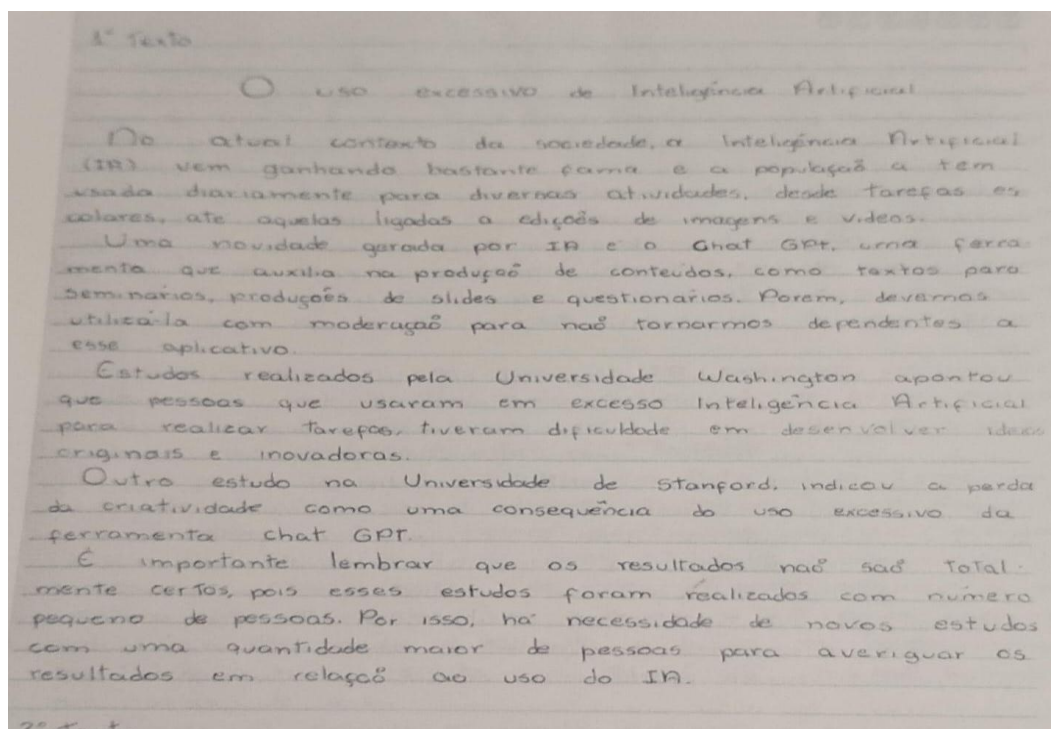 1º Texto
O uso excessivo de Inteligência Artificial
No atual contexto da sociedade, a Inteligência Artificial
(IA) vem ganhando bastante fama e a população a tem
usada diariamente para diversas atividades, desde tarefas es
colares, ate aquelas ligadas a edições de imagens e videos.
Uma novidade gerada por IA e o Chat GPT, uma ferra
menta que auxilia na produção de conteúdos, como textos para
seminários, produções de slides e questionarios. Porem, devemos
utilizá-la com moderação para não tornarmos dependentes a
esse aplicativo.
Estudos realizados pela Universidade Washington apontou
que pessoas que usaram em excesso Inteligência Artificial
para realizar tarefas, tiveram dificuldade em desenvolver ideas
originais e inovadoras.
Outro estudo na Universidade de Stanford, indicou a perda
da criatividade como uma consequência do uso excessivo da
ferramenta chat GPT.
É importante lembrar que os resultados não são total-
mente certos, pois esses estudos foram realizados com número
pequeno de pessoas. Por isso, há necessidade de novos estudos
com uma quantidade maior de pessoas para averiguar os
resultados em relação ao uso do IA.